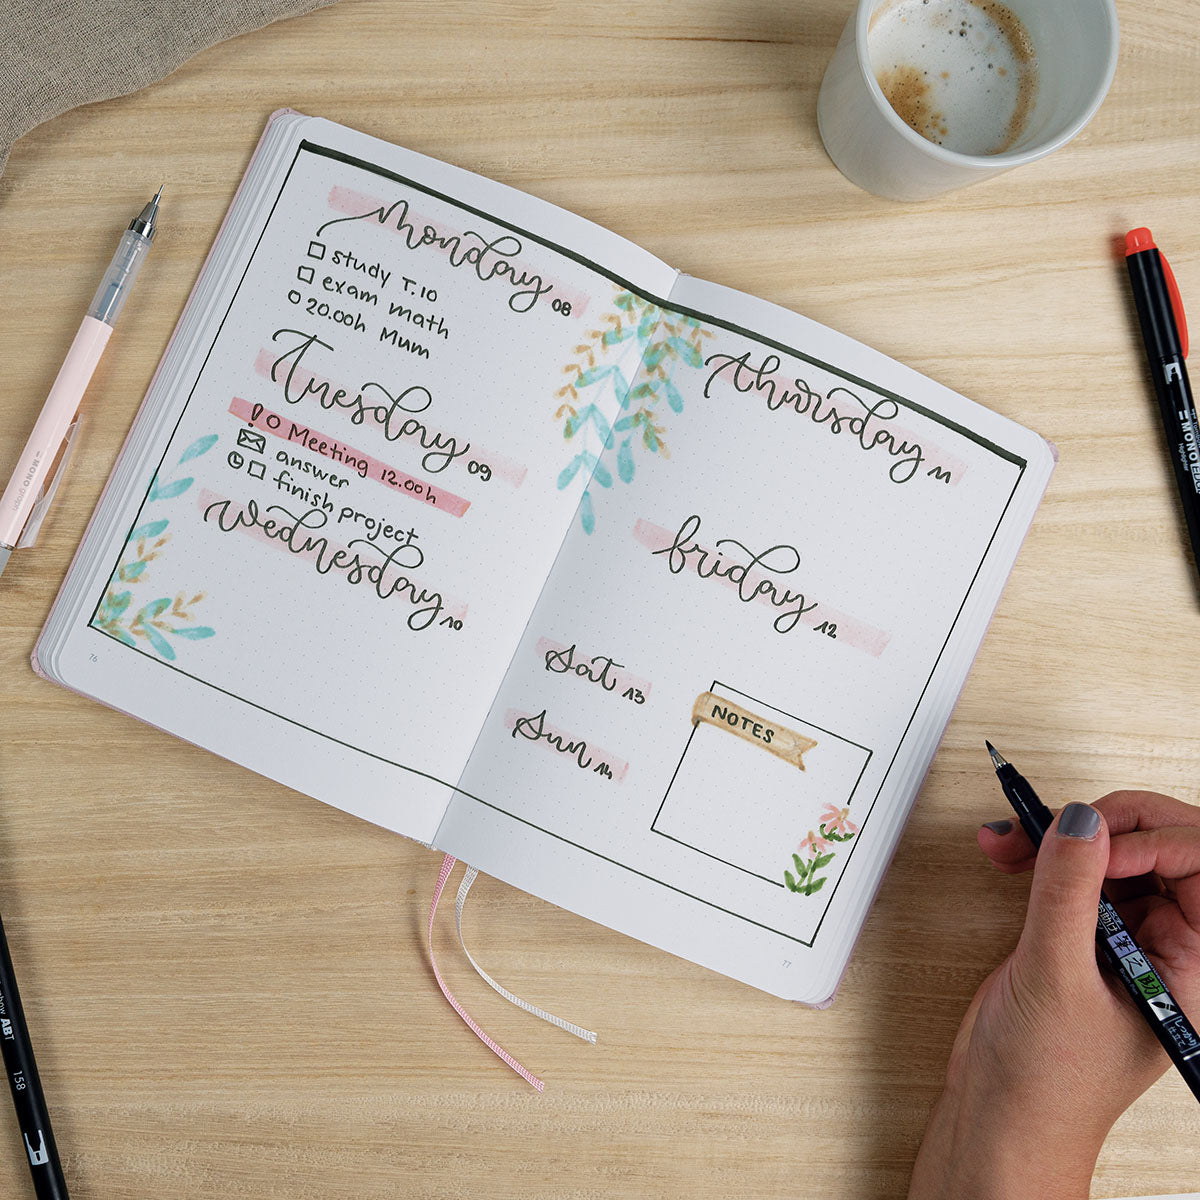 Monday 08
study T.10
exam math
20.00h Mum
Tuesday 09
! O Meeting 12.00h
answer
finish project
Wednesday 10
76
Thursday 11
friday 12
Sat 13
Sun 14
NOTES
77
MONO graph
MONO
ABT
158
筆之助